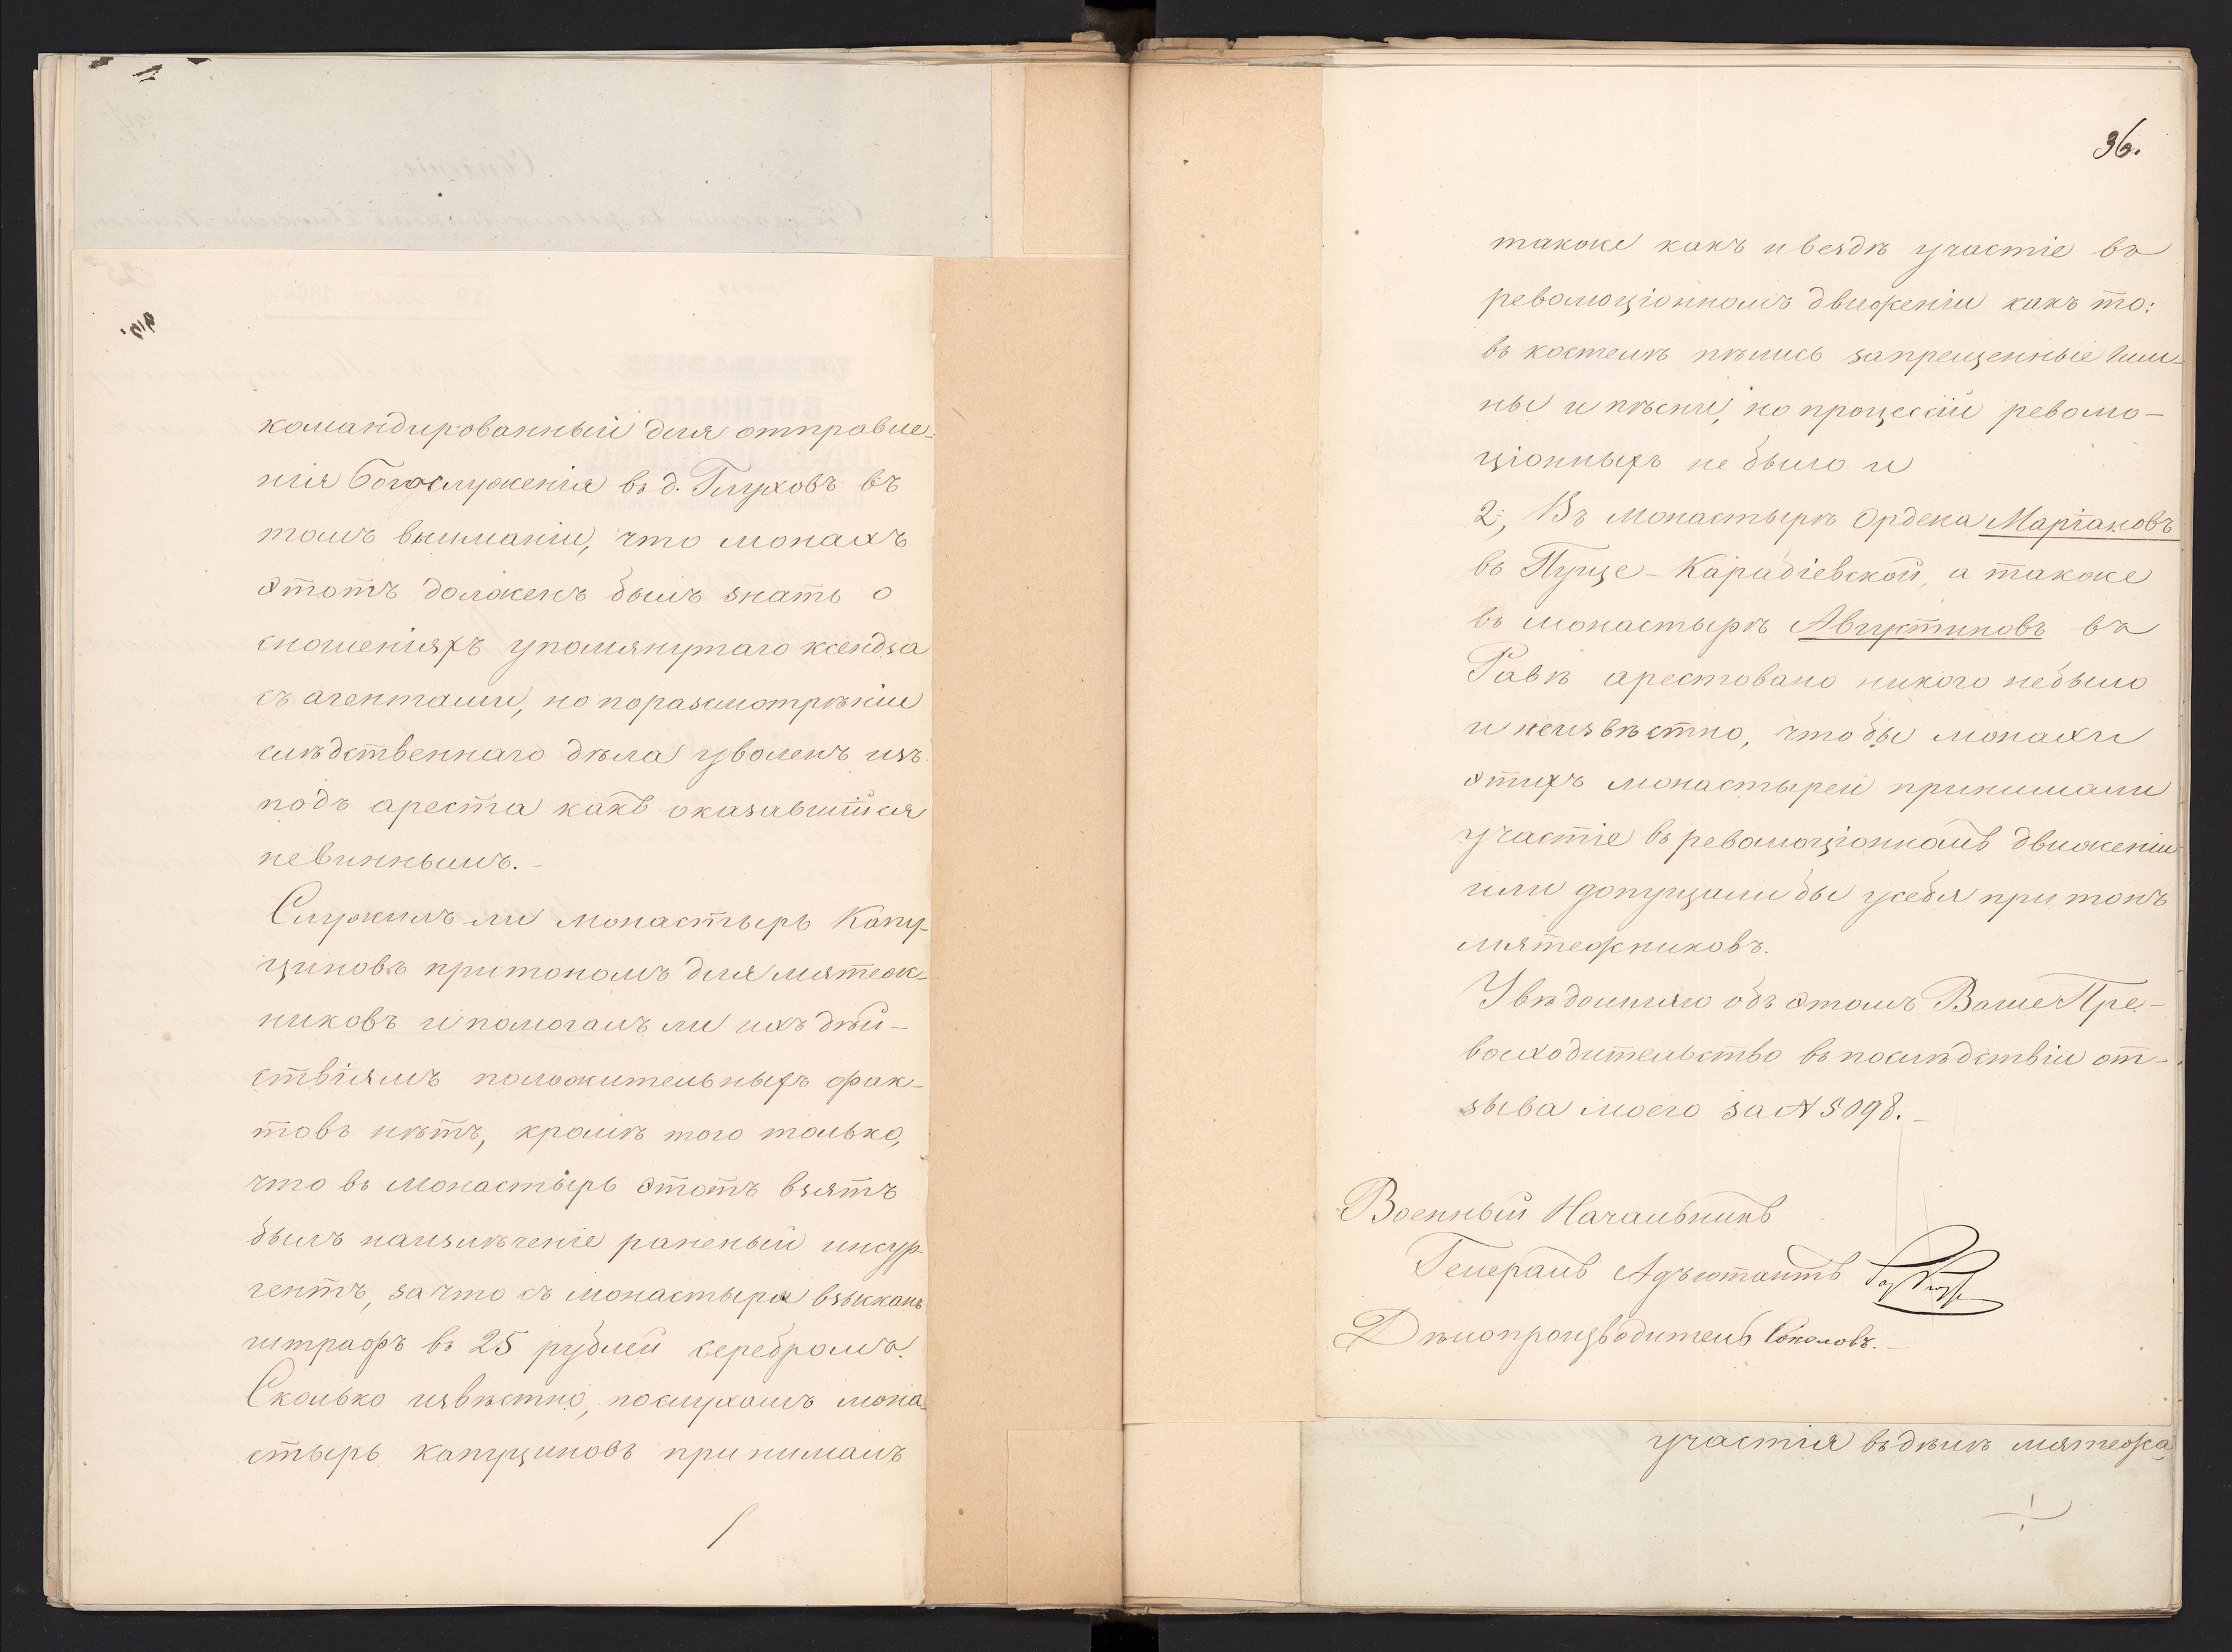 командированный для отправле-
нія Богослуженія въ д. Глуховъ въ
томъ вниманіи, что монахъ
этотъ долженъ былъ знать о
сношеніяхъ упомянутаго ксендза
съ агентами, но поразсмотрѣніи
слѣдственнаго дѣла уволенъ изъ
подъ ареста какъ оказавшійся
невиннымъ. –
Служилъ ли монастырь Капу-
циновъ притономъ для мятеж-
никовъ и помогалъ ли ихъ дѣй-
ствіямъ положительныхъ фак-
товъ нѣтъ, кромѣ того только,
что въ монастырь этотъ взятъ
былъ наизлѣченіе раненый инсур-
гентъ, за что съ монастыря взысканъ
штрафъ въ 25 рублей серебромъ.
Сколько извѣстно, послухамъ мона-
стырь капуциновъ принималъ
36.
также какъ и вездѣ участіе въ
революціонномъ движеніи какъ то:
въ костелѣ пѣлись запрещенные гим-
ны и пѣсни, но процессій револю-
ціонныхъ не было и
2, Въ монастырѣ Ордена Маріановъ
въ Пуще-Карабіевской, а также
въ монастырѣ Августиновъ въ
Равѣ арестовано никого небыло
и неизвѣстно, чтобы монахи
этихъ монастырей принимали
участіе въ революціонномъ движеніи
или допущали бы усебя притонъ
мятежниковъ.
Увѣдомляю объ этомъ Ваше Пре-
восходительство въ послѣдствіи от-
зыва моего за № 5098. –
Военный Начальникъ
Генералъ Адъютантъ
Дѣлопроизводитель Соколовъ. –
участія въ дѣлѣ мятежа